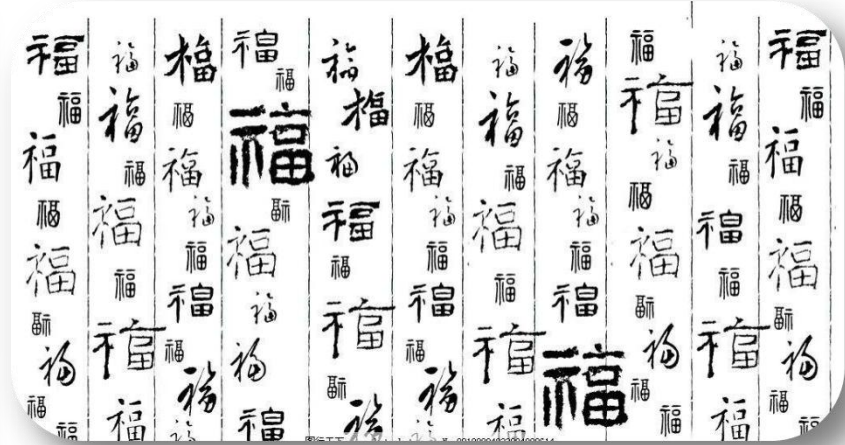 福福福福福福福福福
福福福福福福福
福福福福福福福福福
福福福福福福福
福福福福福福福
福福福福福福福福福
福福福福福福福福
福福福福福福福福
福福福福福福福福福
福福福福福福福
福福福福福福福福福